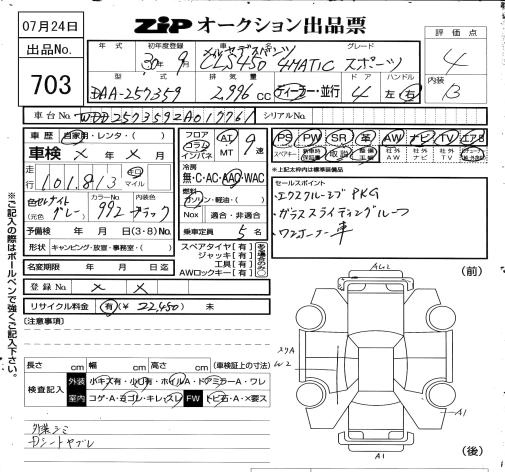 07月24日
ZiP オークション出品票
出品No.
703
年式
初年度登録
30年9月
車名
メルセデスベンツ
CLS450 4MATIC スポーツ
グレード
評価点
4
内装
B
型式
DAA-257359
排気量
2,996 CC
ディーラー・並行
ドア
4
ハンドル
左・右
車台No.
WDD2573592A017761
シリアルNo.
車歴 自家用・レンタ・( )
フロア
コラム
インパネ
AT
MT
9速
PS PW SR 革 AW ナビ TV エアB
スペアキー
新車時保証書
取説
社外AW
社外ナビ
社外TV
車検 × 年 × 月
走行
101,813
キロ
マイル
冷房
無・C・AC・AAC・WAC
燃料
ガソリン・軽油・( )
NOx 適合・非適合
乗車定員 5 名
※上記太枠内は標準装備品
セールスポイント
・エクスクルーシブPKG
・ガラススライディングルーフ
・ワンオーナー車
セレナイト
グレー
(元色 )
カラーNo.
992
内装色
ブラック
予備検 年 月 日(3・8)No.
形状 キャンピング・放置・事務室・( )
スペアタイヤ[有]
ジャッキ[有]
工具[有]
AWロックキー[有]
ある場合のみ○
名変期限 年 月 日迄
登録No. × ×
リサイクル料金 有(¥ 22,450) 未
[注意事項]
※ご記入の際はボールペンで強くご記入下さい。
長さ cm 幅 cm 高さ cm (車検証上の寸法)
検査記入
外装 小キズ有・小凹有・ホイルA・ドアミラーA・ワレ
室内 コゲ・A・ヨゴレ・キレ・スレ FW トビ石・A・×要ス
外装シミ
Dシートヤブレ
(前)
AU2
W2
A1
A1
(後)